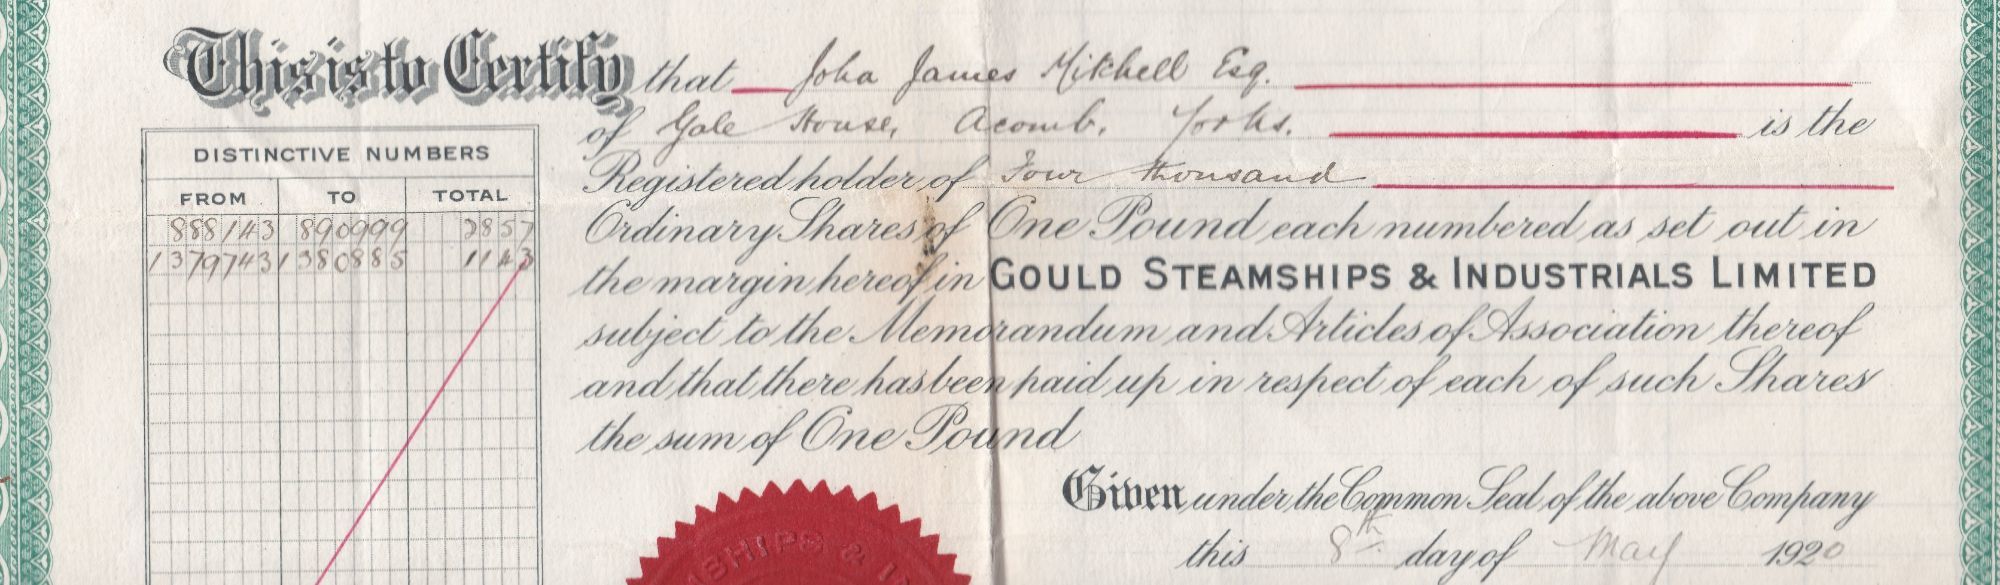 This is to Certify that John James Mitchell Esq.
of Gale House, Acomb, Yorks. is the
Registered holder of Four thousand
Ordinary Shares of One Pound each numbered as set out in
the margin hereof in GOULD STEAMSHIPS & INDUSTRIALS LIMITED
subject to the Memorandum and Articles of Association thereof
and that there has been paid up in respect of each of such Shares
the sum of One Pound
DISTINCTIVE NUMBERS
FROM TO TOTAL
888143 890999 2857
1379743 1380885 1143
Given under the Common Seal of the above Company
this 8th day of May 1920
SHIPS & I